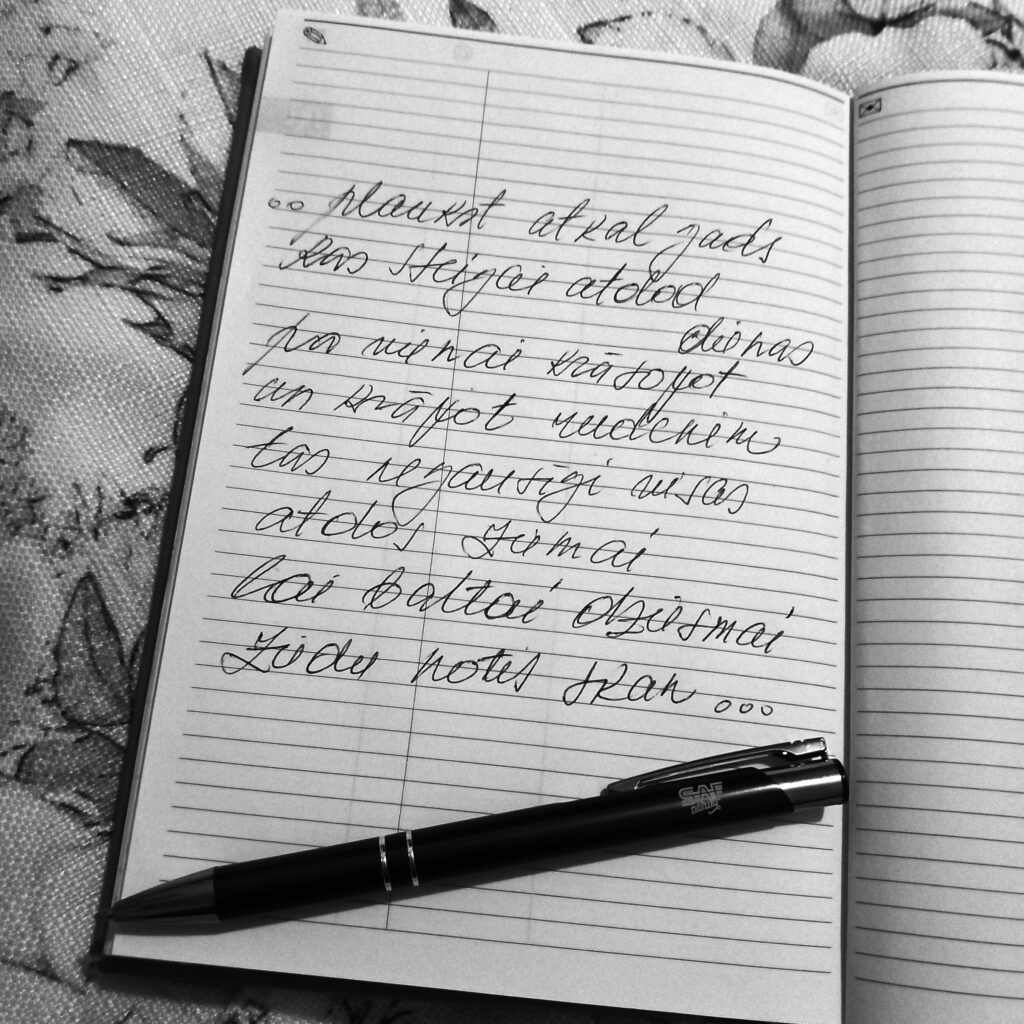 .. plaukst atkal gads
kas steigai atdod
dienas
pa vienai krāsojot
un krājot rudenim
tas negausīgi visas
atdos ziemai
lai baltai dziesmai
ziedu notis skan ...